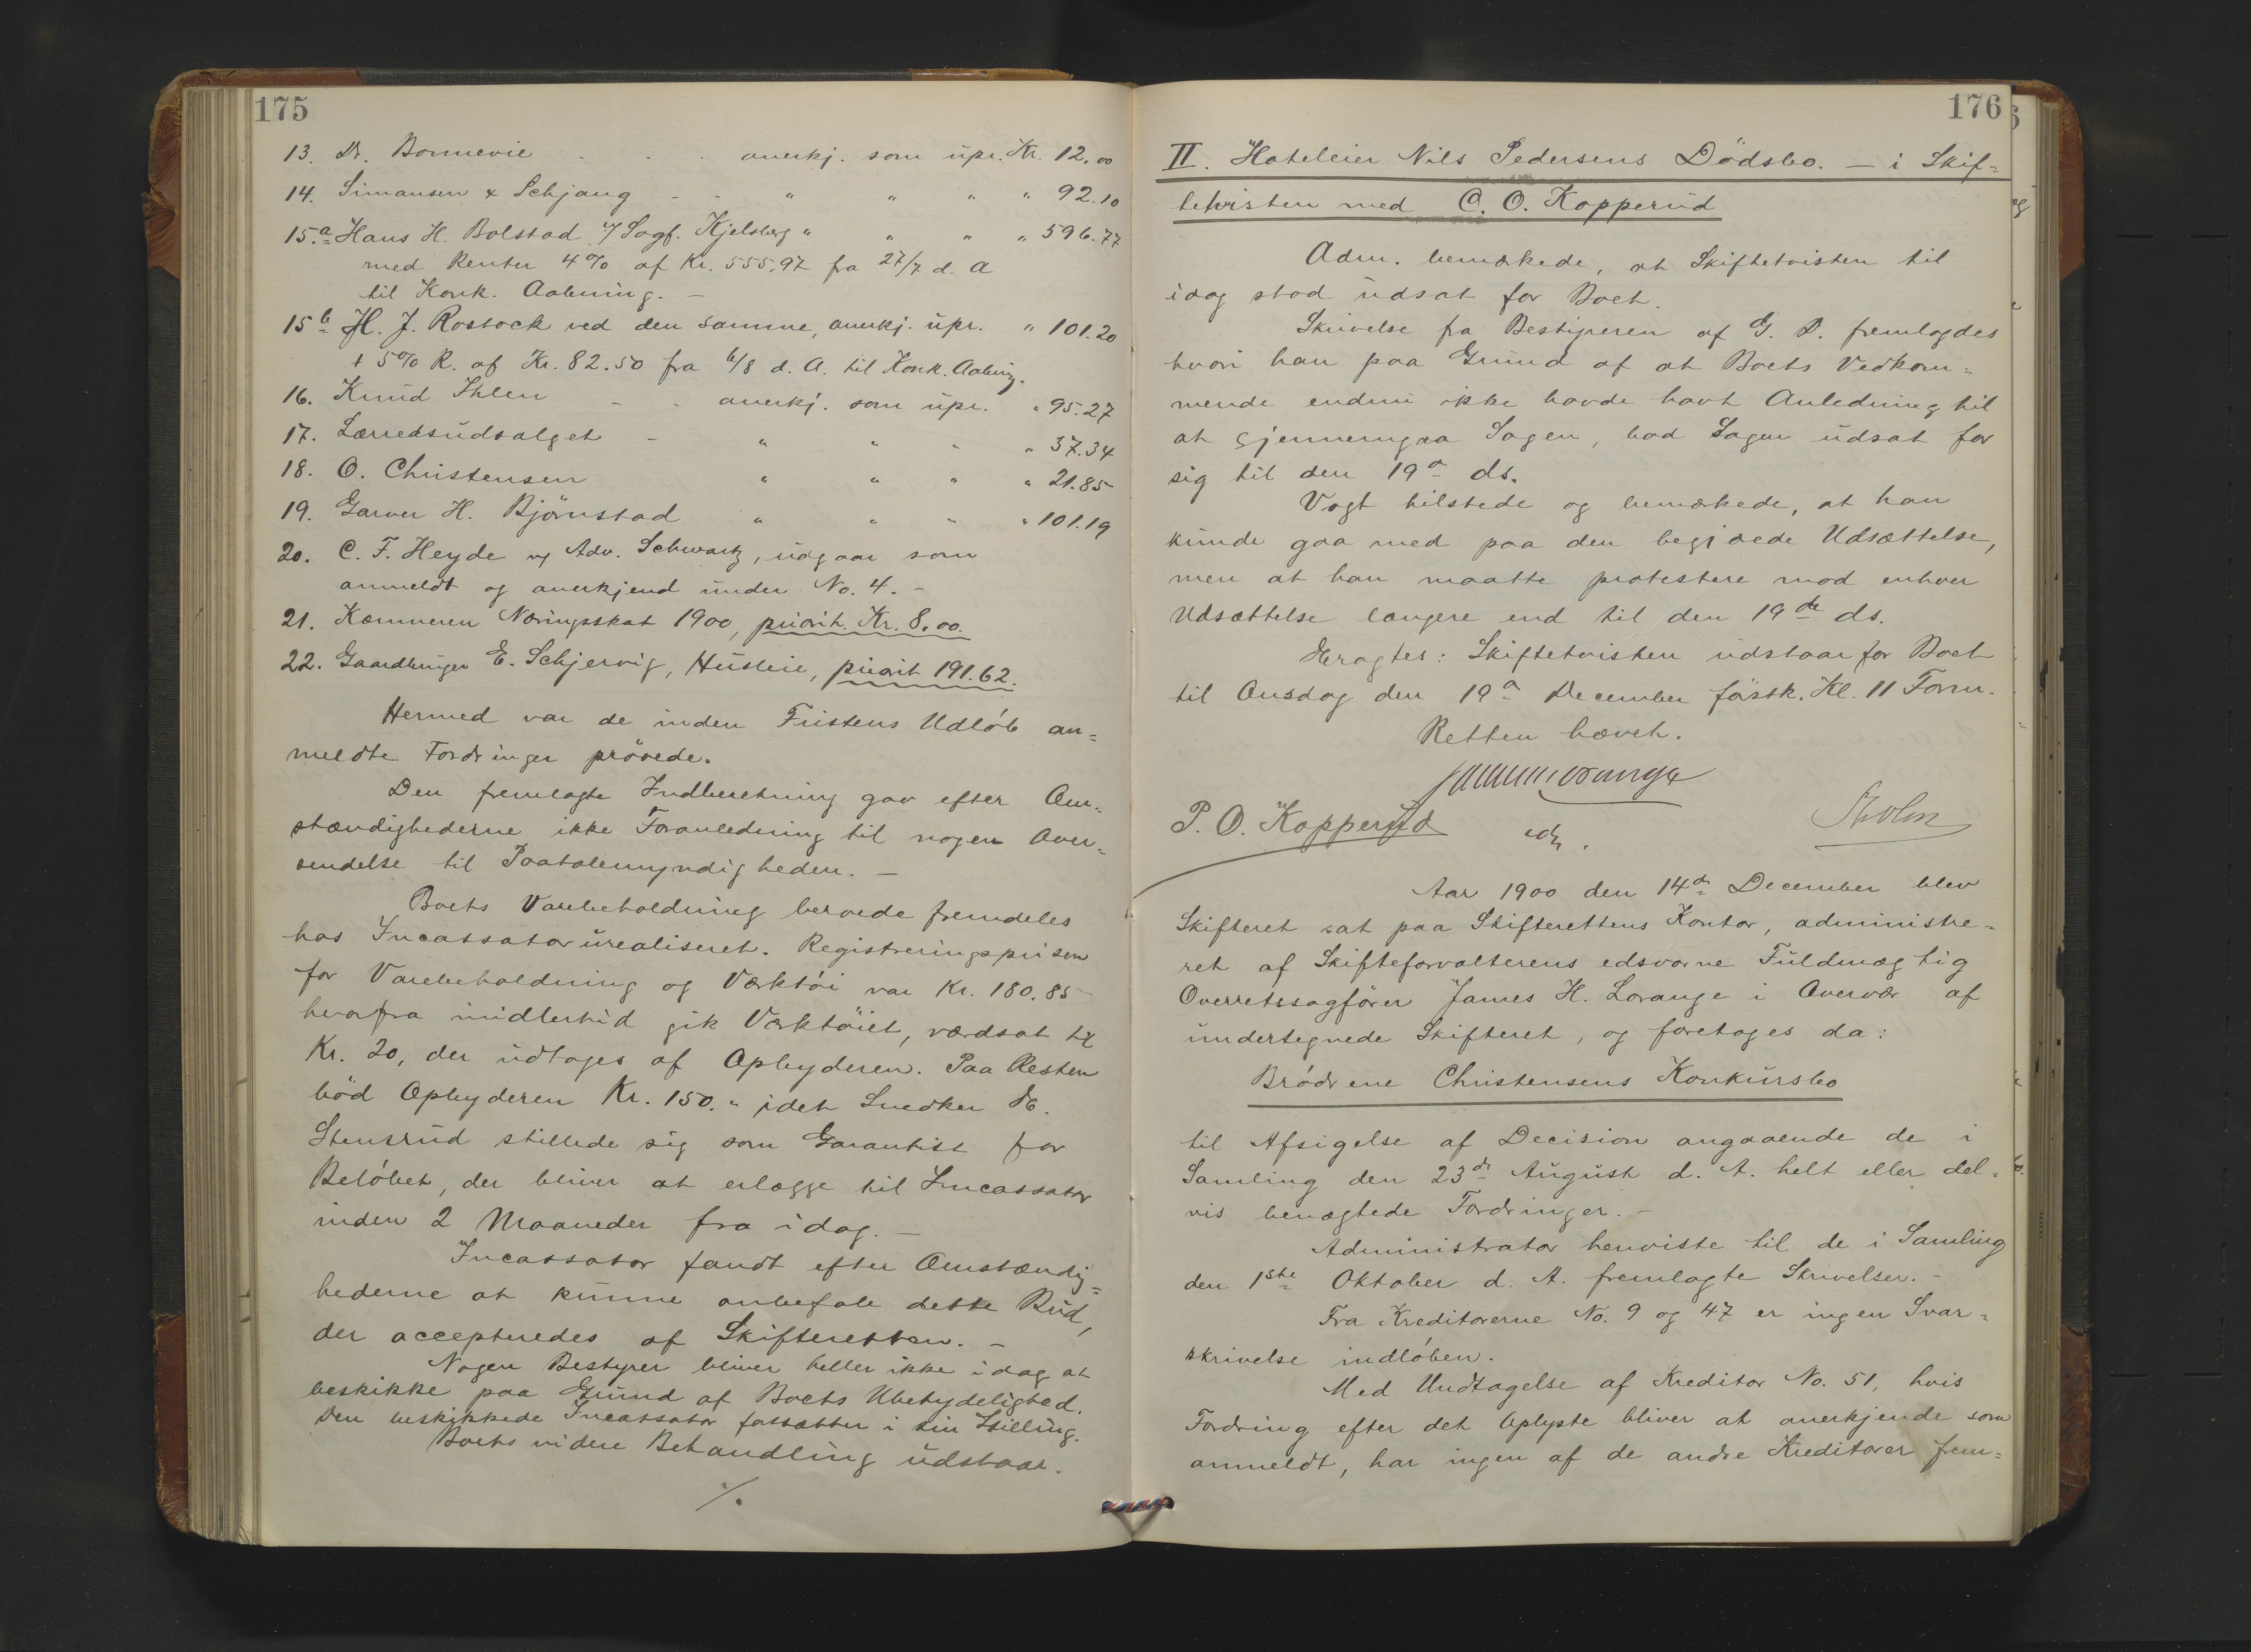 175
13. Dr. Bonnevie - - - anerkj. som upr. Kr. 12.00
14. Simansen & Schjang - - " " " " 92.10
15.a Hans H. Bolstad v/ Sagf. Kjelsberg " " " " 596.77
med Renter 4% af Kr. 555.97 fra 27/7 d. A
til Konk. Aabning. -
15 b H. J. Rostock ved den samme, anerkj. upr. " 101.20
+ 5% R. af Kr. 82.50 fra 6/8 d. A. til Konk. Aabning.
16. Knud Ihlen - - anerkj. som upr. " 95.27
17. Lærredsudsalget - " " " " 37.34
18. O. Christensen " " " " 21.85
19. Garver H. Bjørnstad " " " " 101.19
20. C. F. Heyde v/ Adv. Schwartz, udgaar som
anmeldt og anerkjend under No. 4. -
21. Kæmneren Næringsskat 1900, priorit. Kr. 8.00.
22. Gaardbruger E. Schjervig, Husleie, priorit 191.62.
Hermed var de inden Fristens Udløb an=
meldte Fordringer prøvede.
Den fremlagte Indberetning gav efter Om=
stændighederne ikke Foranledning til nogen Over=
sendelse til Paatalemyndigheden. -
Boets Varebeholdning beroede fremdeles
hos Incassator urealiseret. Registreringsprisen
for Varebeholdning og Værktøi var Kr. 180.85
hvorfra imidlertid gik Værktøiet, værdsat til
Kr. 20, der udtages af Opbyderen. Paa Resten
bød Opbyderen Kr. 150. " idet Snedker
Stensrud stillede sig som Garantist for
Beløbet, der bliver at erlægge til Incassator
inden 2 Maaneder fra idag. -
Incassator fandt efter Omstændig=
hederne at kunne anbefale dette Bud,
der accepteredes af Skifteretten. -
Nogen Bestyrer bliver heller ikke idag at
beskikke paa Grund af Boets Ubetydelighed.
Den beskikkede Incassator fortsætter i sin Stilling.
Boets videre Behandling udstaar.
./.
176
II. Hoteleier Nils Pedersens Dødsbo. - i Skif=
tetvisten med C. O. Kopperud
Adm. bemærkede, at Skiftetvisten til
idag stod udsat for Boet.
Skrivelse fra Bestyreren af G. D. fremlagdes
hvori han paa Grund af at Boets Vedkom=
mende endnu ikke havde havt Anledning til
at gjennemgaa Sagen, bad Sagen udsat for
sig til den 19de ds.
Vogt tilstede og bemærkede, at han
kunde gaa med paa den begjærede Udsættelse,
men at han maatte protestere mod enhver
Udsættelse længere end til den 19de ds.
Eragtes: Skiftetvisten udstaar for Boet
til Onsdag den 19de December førstk. Kl. 11 Form.
Retten hævet.
James Lorange
P. O. Kopperud
Aar 1900 den 14de December blev
Skifteret sat paa Skifterettens Kontor, administre=
ret af Skifteforvalterens edsvorne Fuldmægtig
Overretssagfører James H. Lorange i Overvær af
undertegnede Skifteret, og foretoges da:
Brødrene Christensens Konkursbo
til Afsigelse af Decision angaaende de i
Samling den 23de August d. A. helt eller del=
vis benægtede Fordringer. -
Administrator henviste til de i Samling
den 1ste Oktober d. A. fremlagte Skrivelser. -
Fra Kreditorerne No. 9 og 47 er ingen Svar=
skrivelse indløben.
Med Undtagelse af Kreditor No. 51, hvis
Fordring efter det Oplyste bliver at anerkjende som
anmeldt, har ingen af de andre Kreditorer frem=